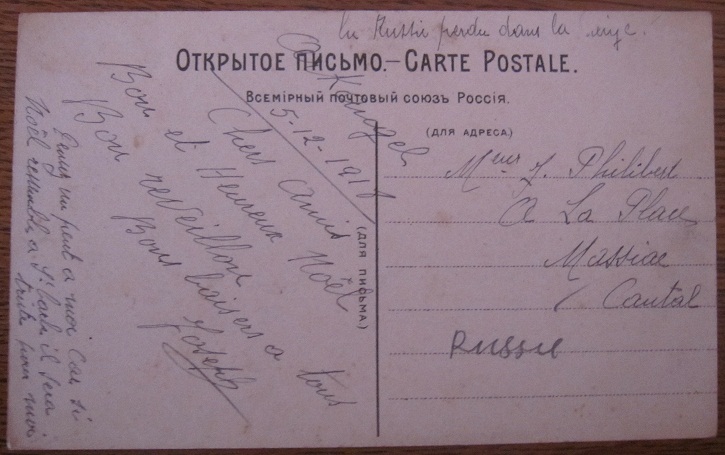 En Russie perdu dans la neige.
ОТКРЫТОЕ ПИСЬМО.—CARTE POSTALE.
ВСЕМІРНЫЙ ПОЧТОВЫЙ СОЮЗЪ РОССІЯ.
(ДЛЯ АДРЕСА.)
(ДЛЯ ПИСЬМА.)
5-12-1918
Chers amis
Bon et Heureux Noël
Bon reveillon
Bons baisers a tous
Joseph
un peut a moi car si
Noël ressemble a St il sera
triste pour moi
Meur J. Philibert
A La Place
Massiac
Cantal
Russie